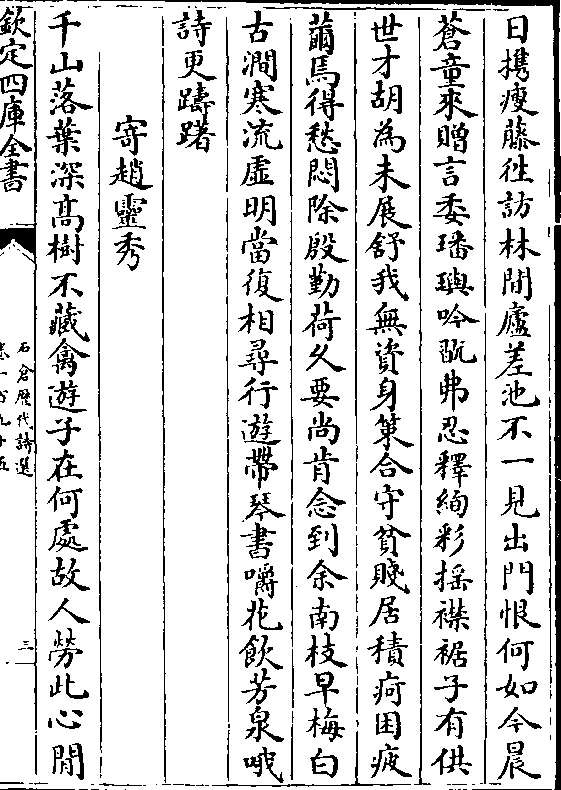 日携瘦藤徃訪林間廬差池不一見出門恨何如今晨
蒼童來贈言委璠璵吟翫弗忍釋絢彩揺襟裾子有供
世才胡為未展舒我無資身策合守貧賤居積疴困疲
薾焉得愁悶除殷勤荷久要尚肯念到余南枝早梅白
古澗寒流虛明當復相尋行遊帶琴書嚼花飲芳泉哦
詩更躊躇
寄趙靈秀
千山落葉深髙樹不藏禽遊子在何處故人勞此心閒
欽定四庫全書
石倉歴代詩選
三